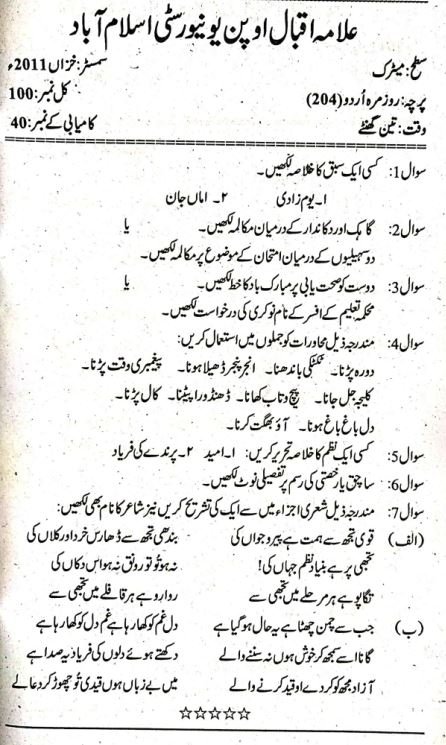 علامہ اقبال اوپن یونیورسٹی اسلام آباد
سطح: میٹرک سمسٹر: خزاں 2011ء
پرچہ: روزمرہ اُردو (204) کل نمبر: 100
وقت: تین گھنٹے کامیابی کے نمبر: 40
سوال 1: کسی ایک سبق کا خلاصہ لکھیں۔
۱۔ یوم زادی ۲۔ اماں جان
سوال 2: گاہک اور دکاندار کے درمیان مکالمہ لکھیں۔ یا
دو سہیلیوں کے درمیان امتحان کے موضوع پر مکالمہ لکھیں۔
سوال 3: دوست کو صحت یابی پر مبارک باد کا خط لکھیں۔ یا
محکمہ تعلیم کے افسر کے نام نوکری کی درخواست لکھیں۔
سوال 4: مندرجہ ذیل محاورات کو جملوں میں استعمال کریں:
دورہ پڑنا۔ ٹکٹکی باندھنا۔ انجر پنجر ڈھیلا ہونا۔ پیغمبری وقت پڑنا۔
کلیجہ جل جانا۔ پیچ و تاب کھانا۔ ڈھنڈورا پیٹنا۔ کال پڑنا۔
دل باغ باغ ہونا۔ آؤ بھگت کرنا۔
سوال 5: کسی ایک نظم کا خلاصہ تحریر کریں: ۱۔ امید ۲۔ پرندے کی فریاد
سوال 6: ساچق یا رخصتی کی رسم پر تفصیلی نوٹ لکھیں۔
سوال 7: مندرجہ ذیل شعری اجزاء میں سے ایک کی تشریح کریں نیز شاعر کا نام بھی لکھیں:
(الف) قوی تجھ سے ہمت ہے پیر و جواں کی بندھی تجھ سے ڈھارس خرد اور کلاں کی
تجھی پر ہے بنیاد نظم جہاں کی! نہ ہو تُو تو رونق نہ ہو اس دکاں کی
تگاپو ہے ہر مرحلے میں تجھی سے روا رو ہے ہر قافلے میں تجھی سے
(ب) جب سے چمن چھٹا ہے یہ حال ہو گیا ہے دل غم کو کھا رہا ہے غم دل کو کھا رہا ہے
گانا اسے سمجھ کر خوش ہوں نہ سننے والے دکھتے ہوئے دلوں کی فریاد یہ صدا ہے
آزاد مجھ کو کر دے او قید کرنے والے میں بے زباں ہوں قیدی تو چھوڑ کر دعا لے
☆☆☆☆☆